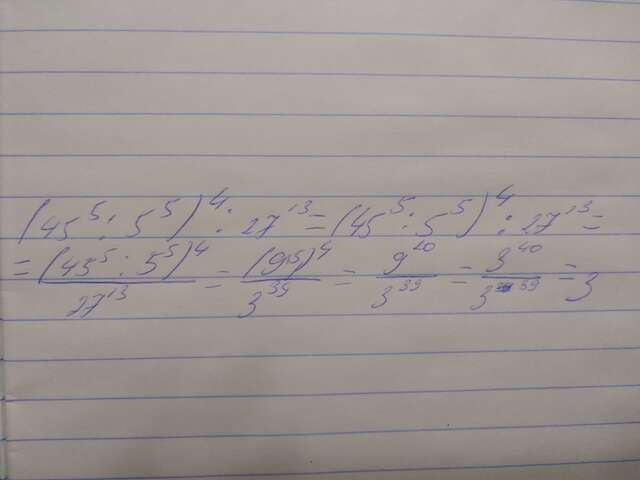 (45⁵ : 5⁵)⁴ : 27¹³ = (45⁵ : 5⁵)⁴ : 27¹³ =
= (45⁵ : 5⁵)⁴ / 27¹³ = (9⁵)⁴ / 3³⁹ = 9²⁰ / 3³⁹ = 3⁴⁰ / 3³⁹ = 3